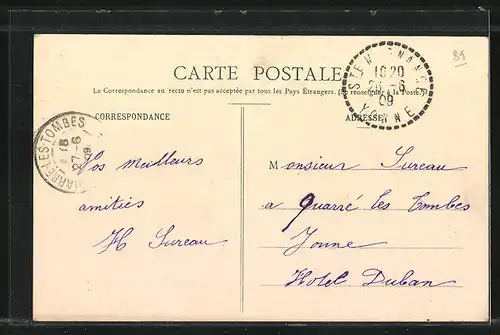 89
CARTE POSTALE
La Correspondance au recto n'est pas acceptée par tous les Pays Étrangers. (Se renseigner à la Poste)
CORRESPONDANCE
ADRESSE
10 20
26 - 6
09
YONNE
QUARRÉ-LES-TOMBES
27-6
09
Vos meilleurs
amitiés
H Sureau
Monsieur Sureau
a Quarré les Tombes
Yonne
Hotel Duban